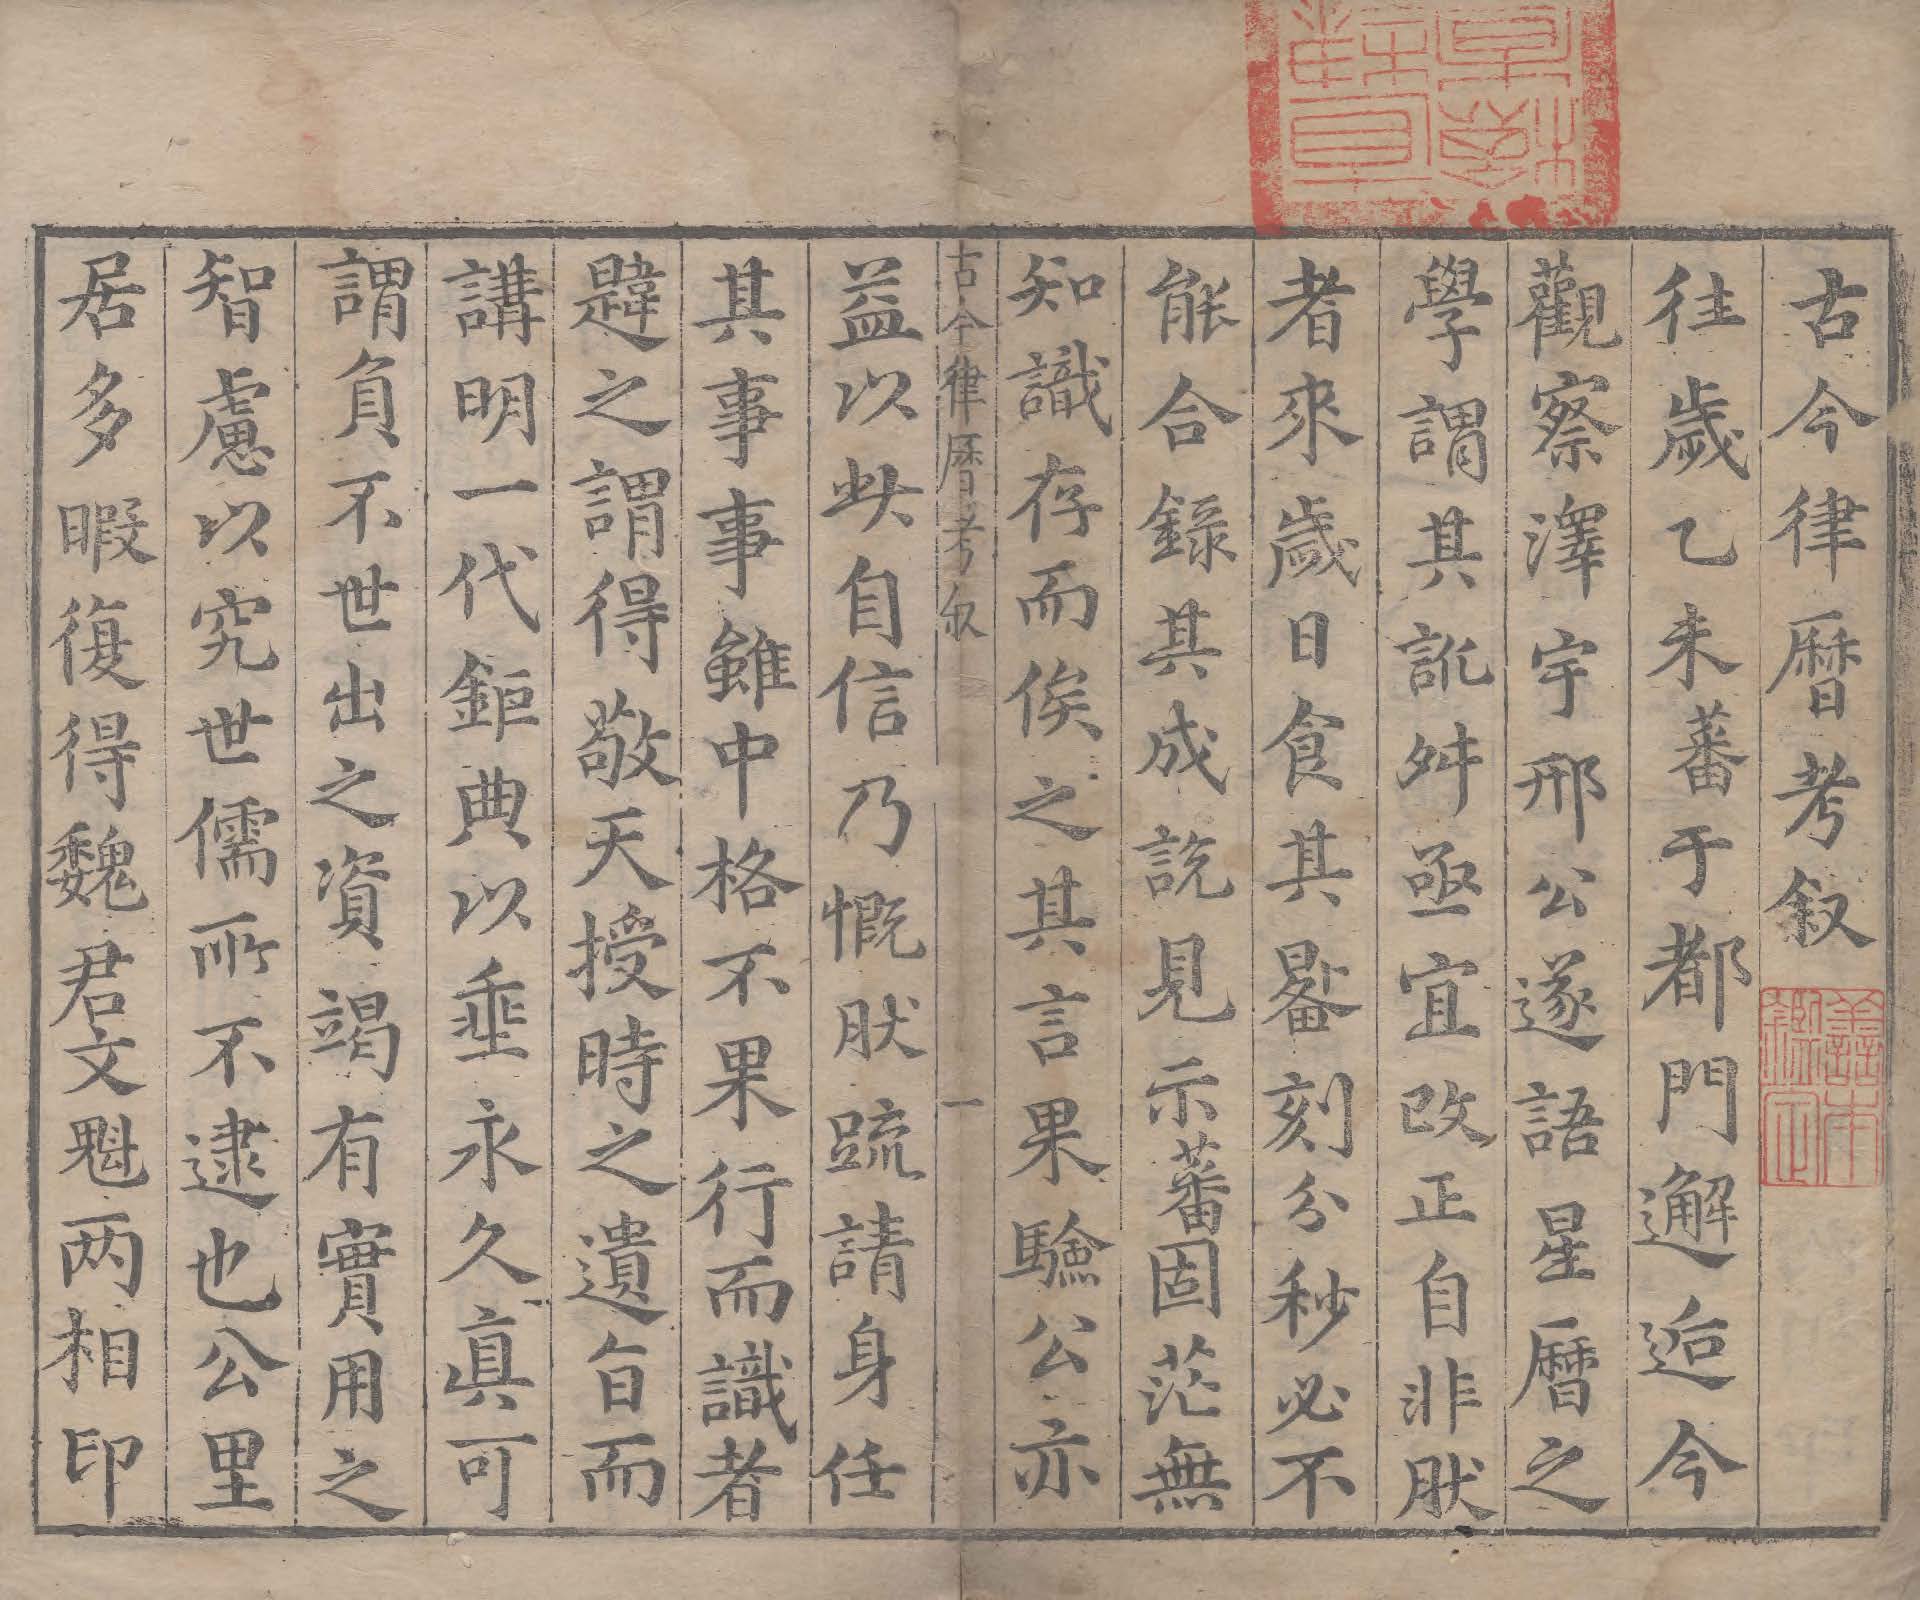 古今律曆考叙
往歲乙未蕃于都門邂逅今
觀察澤宇邢公遂語星曆之
學謂其訛舛亟宜改正自非肰
者來歲日食其晷刻分秒必不
能合錄其成說見示蕃固茫無
知識存而俟之其言果驗公亦
古今律曆考叙
一
益以此自信乃慨肰疏請身任
其事事雖中格不果行而識者
韙之謂得敬天授時之遺旨而
講明一代鉅典以垂永久真可
謂負不世出之資竭有實用之
智慮以究世儒所不逮也公里
居多暇復得魏君文魁两相印
善本